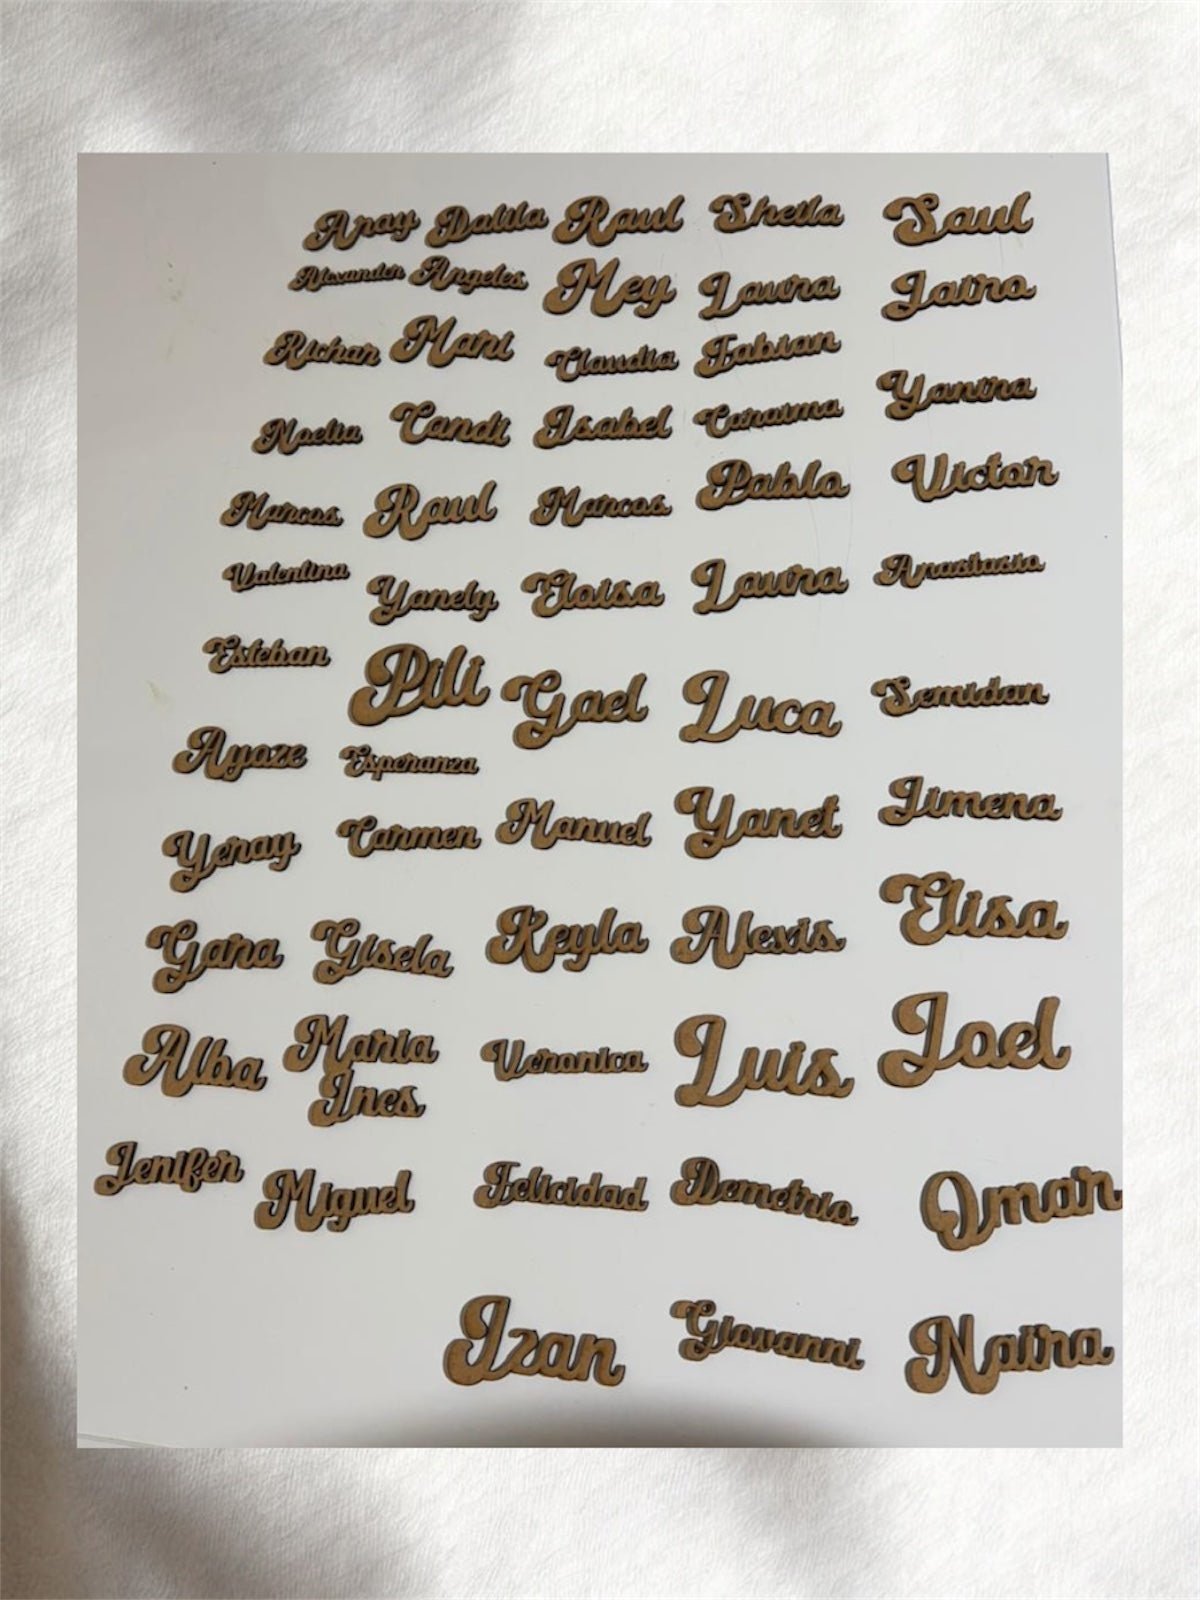 Aray Dalila Raul Sheila Saul
Alexander Angeles Mey Laura Jairo
Richar Mari Claudia Fabian
Noelia Candi Isabel Caraima Yanira
Marcos Raul Marcos Pablo Victor
Valentina Yanely Eloisa Laura Anastasio
Esteban Pili Gael Luca Semidan
Ayoze Esperanza
Yeray Carmen Manuel Yanet Jimena
Gara Gisela Keyla Alexis Elisa
Alba Maria Veronica Luis Joel
Ines
Jenifer Miguel Felicidad Demetrio Omar
Izan Giovanni Naira